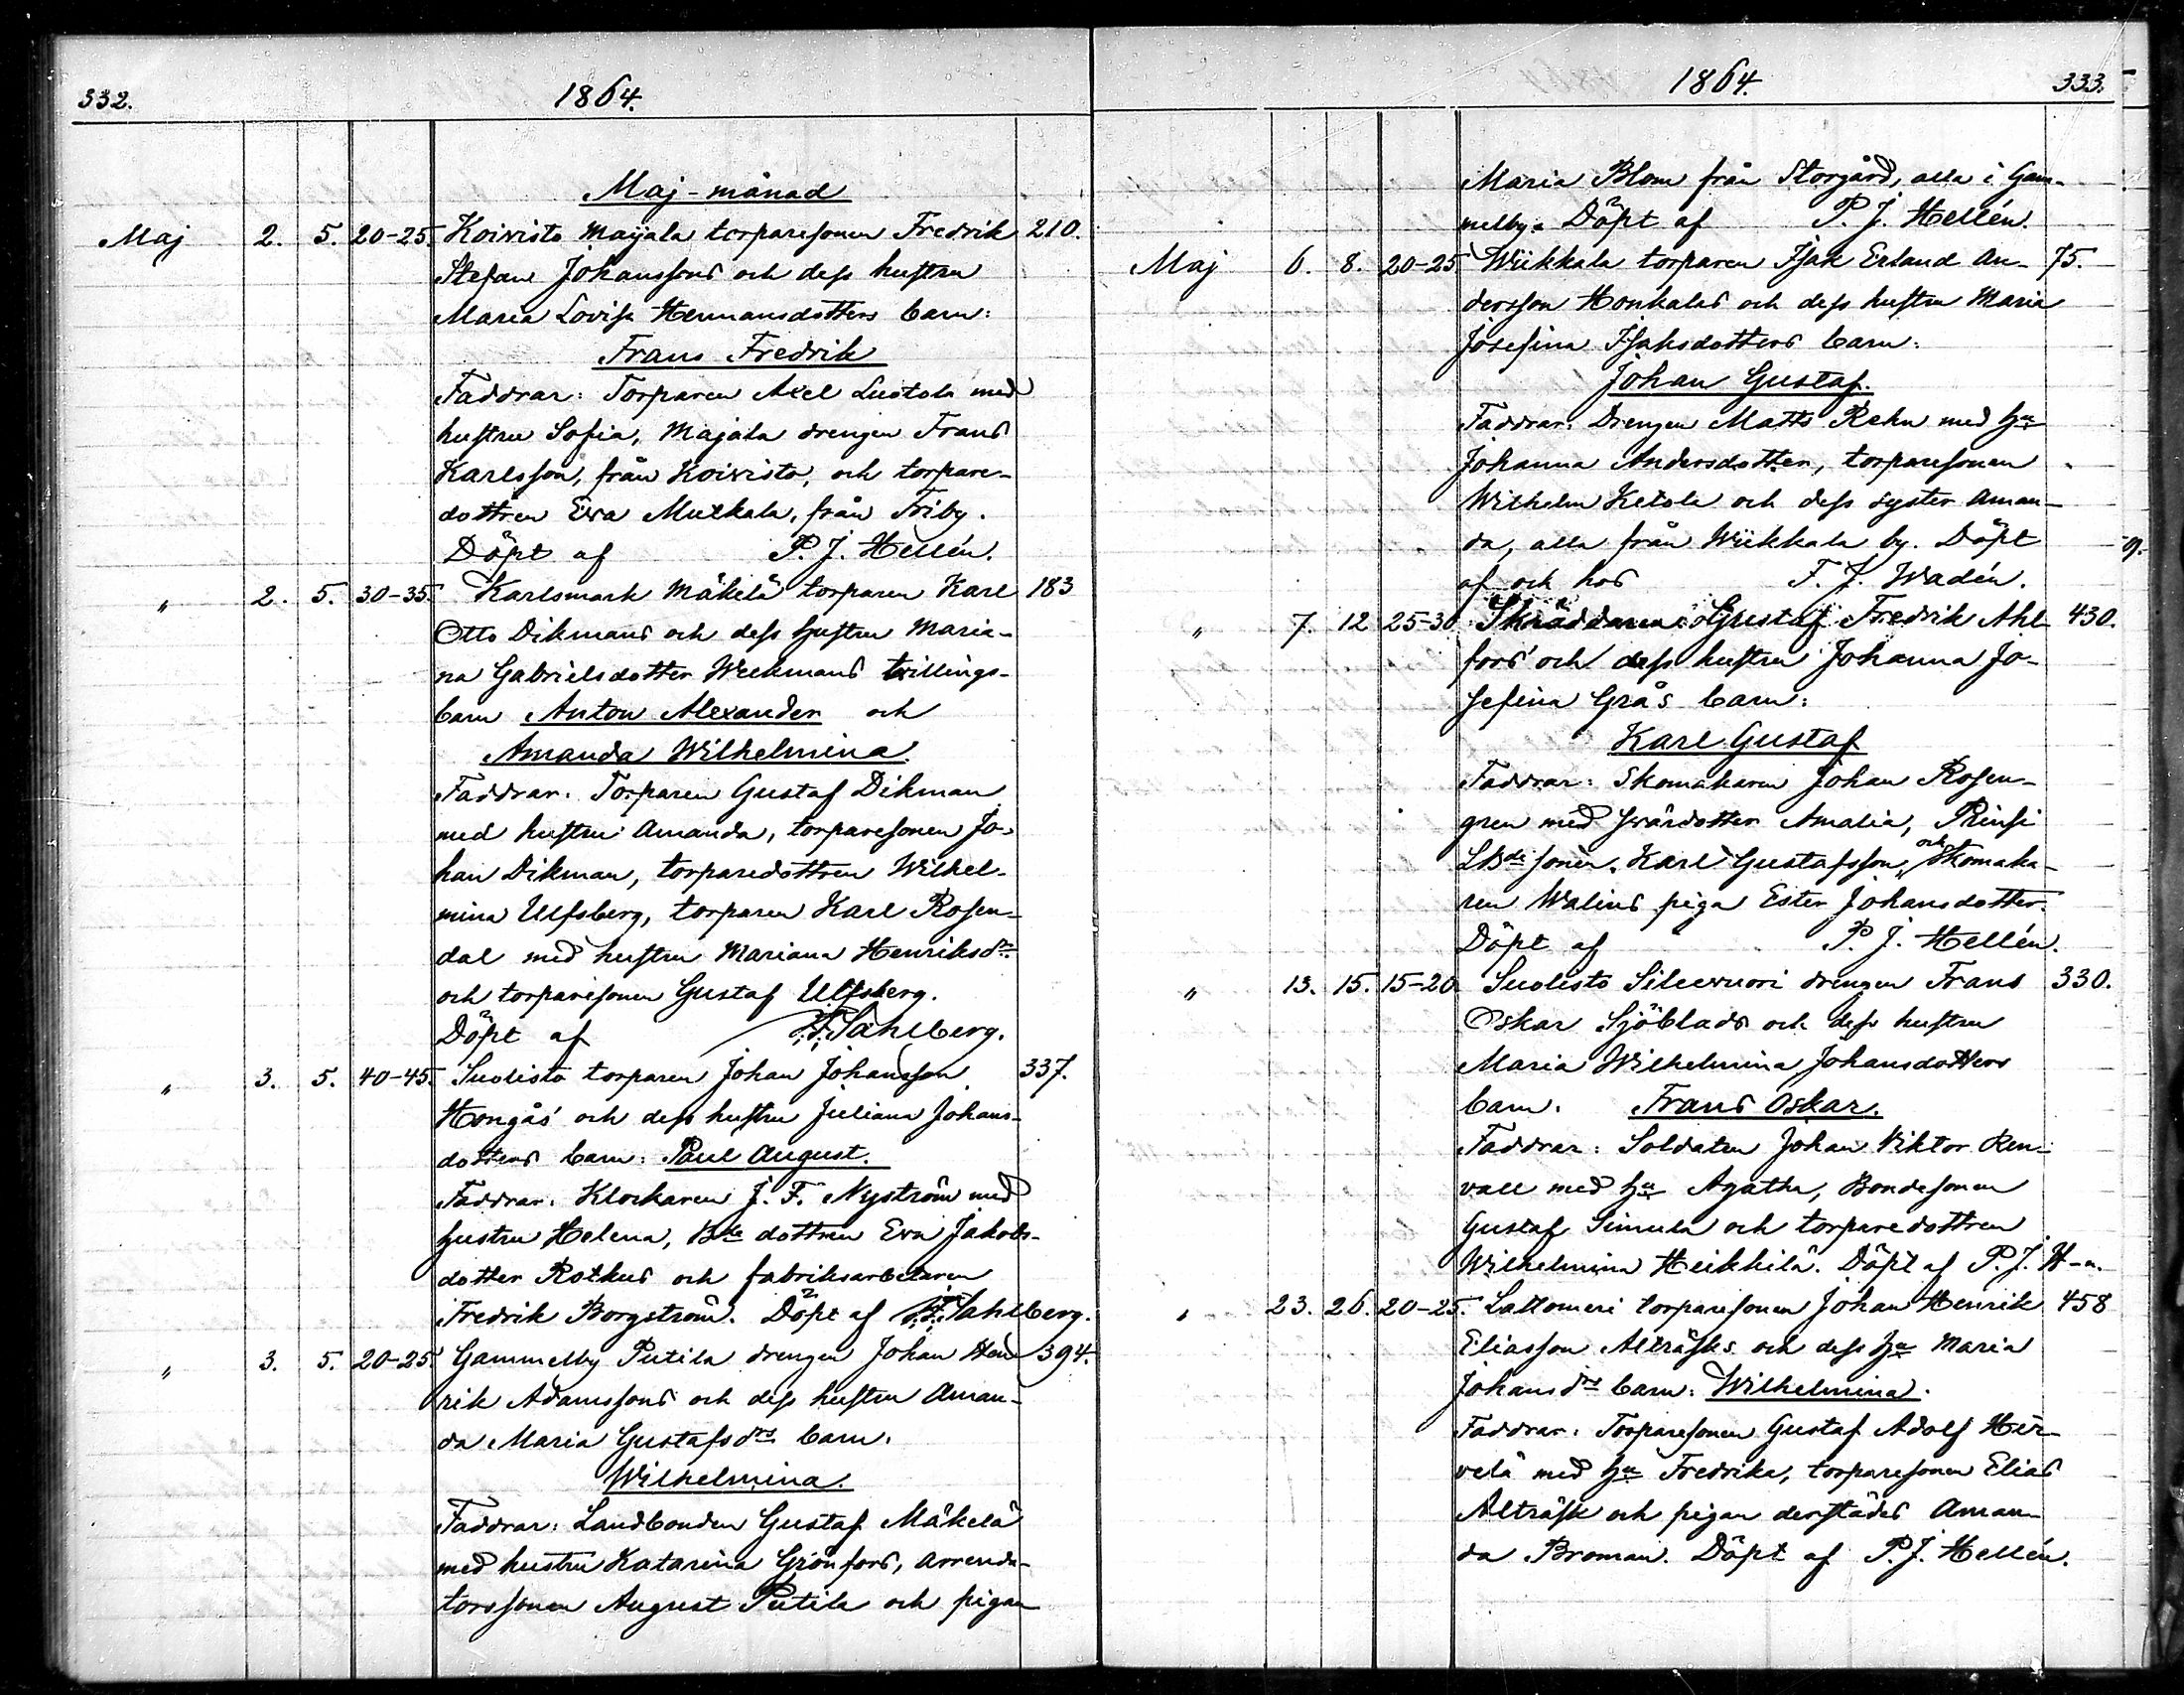 332. 1864.
Maj-månad
Maj 2. 5. 20-25. Koivisto Maijala torparesonen Fredrik 210.
Stefan Johanssons och dess hustru
Maria Lovisa Hermansdotters barn:
Frans Fredrik
Faddrar: Torparen Axel Luotola med
hustru Sofia, Majala drengen Frans
Karlsson, från Koivisto, och torpare-
dottren Eva Mutkala, från Friby.
Döpt af P. J. Hellén.
" 2. 5. 30-35. Karlsmark Mäkelä torparen Karl 183
Otto Dikmans och dess hustru Maria-
na Gabrielsdotter Weckmans tvillings-
barn Anton Alexander och
Amanda Wilhelmina.
Faddrar. Torparen Gustaf Dikman
med hustru Amanda, torparesonen Jo-
han Dikman, torparedottren Wilhel-
mina Ulfsberg, torparen Karl Rosen-
dal med hustru Mariana Henriksdr
och torparesonen Gustaf Ulfsberg.
Döpt af F. Sahlberg.
" 3. 5. 40-45. Suolisto torparen Johan Johansson 337.
Hongås' och dess hustru Juliana Johans-
dotters barn: Paul August.
Faddrar. Klockaren J. F. Nyström med
hustru Helena, Bde dottren Eva Jakobs-
dotter Rotkus och fabriksarbetaren
Fredrik Borgström. Döpt af F. Sahlberg.
" 3. 5. 20-25 Gammelby Putila drengen Johan Hen- 394.
rik Adamssons och dess hustru Aman-
da Maria Gustafsdrs barn.
Wilhelmina.
Faddrar: Landbonden Gustaf Mäkelä
med hustru Katarina Grönfors, arrenda-
torssonen August Putila och pigan
1864. 333.
Maria Blom från Storgård, alla i Gam-
melby. Döpt af P. J. Hellén.
Maj 6. 8. 20-25 Wiikkala torparen Isak Erland An- 75.
dersson Honkalas och dess hustru Maria
Josefina Isaksdotters barn.
Johan Gustaf.
Faddrar. Drengen Matts Rehn med hu
Johanna Andersdotter, torparesonen
Wilhelm Ketola och dess syster Aman-
da, alla från Wiikkala by. Döpt
af och hos F. J. Wadén.
" 7. 12 25-30 Skräddaren Gustaf Fredrik Ahl- 430.
fors' och dess hustru Johanna Jo-
sefina Grås barn:
Karl Gustaf
Faddrar: Skomakaren Johan Rosen-
gren med svärdotter Amalia, Prinsi
LBde sonen Karl Gustafsson, och Skomaka-
ren Walins piga Ester Johansdotter.
Döpt af P. J. Hellén.
" 13. 15. 15-20 Suolisto Silevuori drengen Frans 330.
Oskar Sjöblads och dess hustru
Maria Wilhelmina Johansdotters
barn. Frans Oskar.
Faddrar: Soldaten Johan Viktor Ren-
vall med hu Agatha, Bondesonen
Gustaf Simula och torparedottren
Wilhelmina Heikkilä. Döpt af P. J. H-n.
" 23. 26. 20-25. Lattomeri torparesonen Johan Henrik 458
Eliasson Alträsks och dess hu Maria
Johansdrs barn: Wilhelmina.
Faddrar: Torparesonen Gustaf Adolf Hir-
velä med hu Fredrika, torparesonen Elias
Alträsk och pigan derstädes Aman-
da Broman. Döpt af P. J. Hellén.